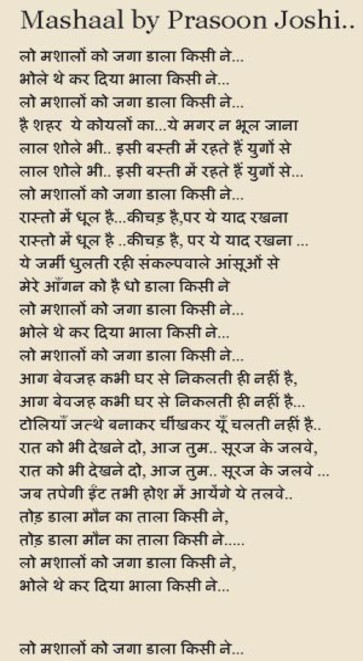 Mashaal by Prasoon Joshi..
लो मशालों को जगा डाला किसी ने...
भोले थे कर दिया भाला किसी ने...
लो मशालों को जगा डाला किसी ने...
है शहर ये कोयलों का...ये मगर न भूल जाना
लाल शोले भी.. इसी बस्ती में रहते हैं युगों से
लाल शोले भी.. इसी बस्ती में रहते हैं युगों से...
लो मशालों को जगा डाला किसी ने...
रास्तो में धूल है...कीचड़ है,पर ये याद रखना
रास्तो में धूल है ..कीचड़ है, पर ये याद रखना ...
ये जमीं धुलती रही संकल्पवाले आंसूओं से
मेरे आँगन को है धो डाला किसी ने
लो मशालों को जगा डाला किसी ने...
भोले थे कर दिया भाला किसी ने...
लो मशालों को जगा डाला किसी ने...
आग बेवजह कभी घर से निकलती ही नहीं है,
आग बेवजह कभी घर से निकलती ही नहीं है...
टोलियाँ जत्थे बनाकर चींखकर यूँ चलती नहीं है..
रात को भी देखने दो, आज तुम.. सूरज के जलवे,
रात को भी देखने दो, आज तुम.. सूरज के जलवे ...
जब तपेगी ईंट तभी होश में आयेंगे ये तलवे..
तोड़ डाला मौन का ताला किसी ने,
तोड़ डाला मौन का ताला किसी ने.....
लो मशालों को जगा डाला किसी ने,
भोले थे कर दिया भाला किसी ने...
लो मशालों को जगा डाला किसी ने...